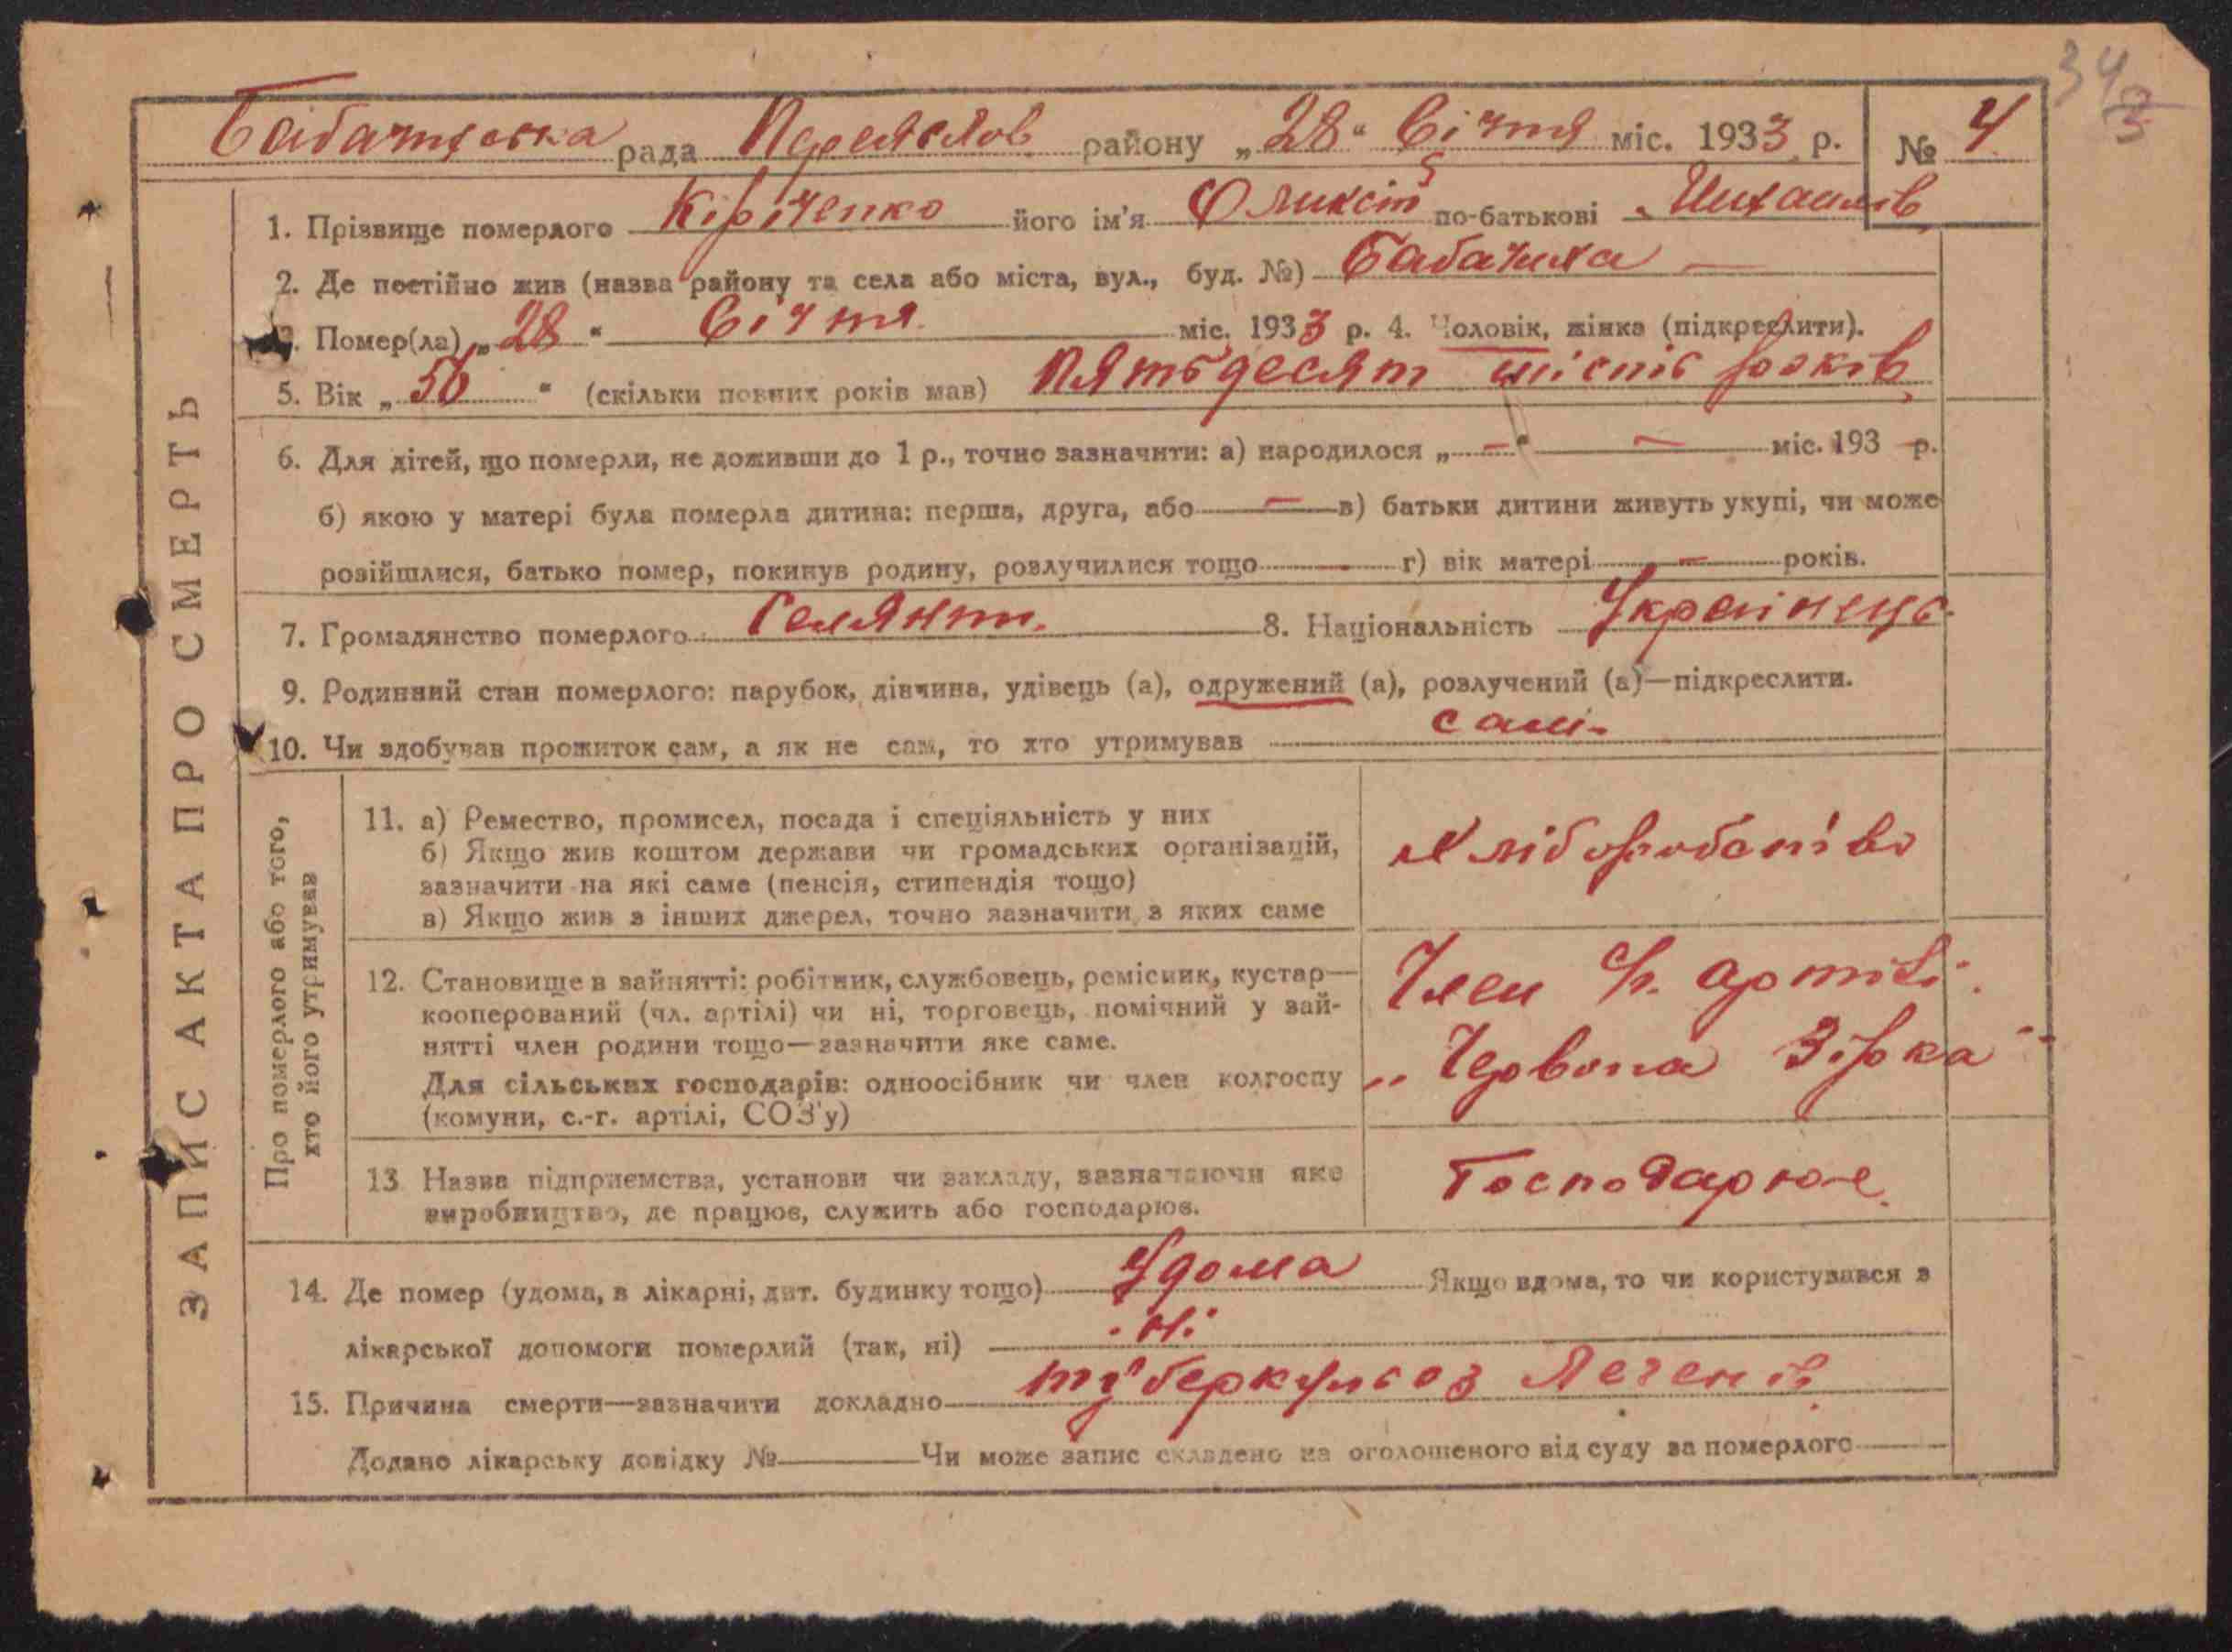 34
3
Бабачиська рада Переяслов району „28" Січня міс. 1933 р. № 4
1. Прізвище померлого Кіріченко його ім'я по-батькові Михайлів
2. Де постійно жив (назва району та села або міста, вул., буд. №) Бабачиха —
3. Помер(ла) „28" Січня міс. 1933 р. 4. Чоловік, жінка (підкреслити).
5. Вік „56" (скільки повних років мав) Пятьдесят шість років
6. Для дітей, що померли, не доживши до 1 р., точно зазначити: а) народилося „—" — міс. 193 – р.
б) якою у матері була померла дитина: перша, друга, або — в) батьки дитини живуть укупі, чи може
розійшлися, батько помер, покинув родину, розлучилися тощо — г) вік матері — років.
7. Громадянство померлого Селянин. 8. Національність Українець.
9. Родинний стан померлого: парубок, дівчина, удівець (а), одружений (а), розлучений (а)—підкреслити.
10. Чи здобував прожиток сам, а як не сам, то хто утримував сам
ЗАПИС АКТА ПРО СМЕРТЬ
Про померлого або того,
хто його утримував
11. а) Ремество, промисел, посада і спеціяльність у них
б) Якщо жив коштом держави чи громадських організацій,
зазначити на які саме (пенсія, стипендія тощо)
в) Якщо жив з інших джерел, точно зазначити з яких саме
Хліборобство
12. Становище в зайнятті: робітник, службовець, ремісник, кустар—
кооперований (чл. артілі) чи ні, торговець, помічний у зай-
нятті член родини тощо—зазначити яке саме.
Для сільських господарів: одноосібник чи член колгоспу
(комуни, с.-г. артілі, СОЗ'у)
Член с/г. артілі
„Червона Зірка"
13 Назва підприємства, установи чи закладу, зазначаючи яке
виробництво, де працює, служить або господарює.
Господарює.
14. Де помер (удома, в лікарні, дит. будинку тощо) Удома Якщо вдома, то чи користувався з
лікарської допомоги померлий (так, ні) ні
15. Причина смерти—зазначити докладно туберкульоз легенів
Додано лікарську довідку № Чи може запис складено на оголошеного від суду за померлого